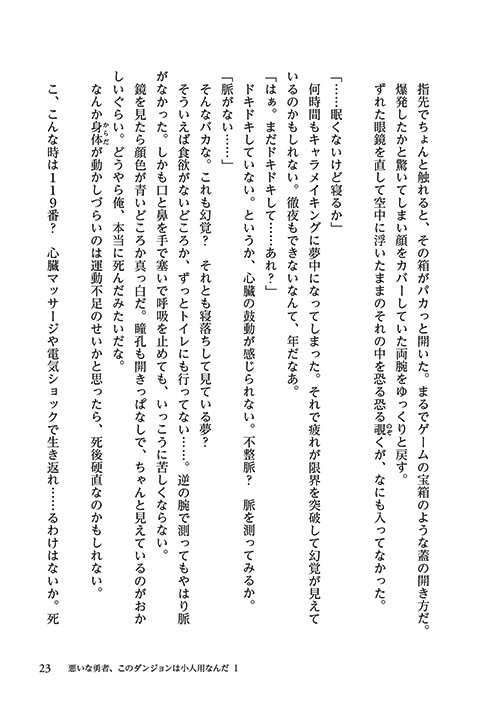 指先でちょんと触れると、その箱がパカっと開いた。まるでゲームの宝箱のような蓋の開き方だ。
爆発したかと驚いてしまい顔をカバーしていた両腕をゆっくりと戻す。
ずれた眼鏡を直して空中に浮いたままのそれの中を恐る恐る覗くが、なにも入ってなかった。
「……眠くないけど寝るか」
何時間もキャラメイキングに夢中になってしまった。それで疲れが限界を突破して幻覚が見えて
いるのかもしれない。徹夜もできないなんて、年だなあ。
「はぁ。まだドキドキして……あれ？」
ドキドキしていない。というか、心臓の鼓動が感じられない。不整脈？　脈を測ってみるか。
「脈がない……」
そんなバカな。これも幻覚？　それとも寝落ちして見ている夢？
そういえば食欲がないどころか、ずっとトイレにも行ってない……。逆の腕で測ってもやはり脈
がなかった。しかも口と鼻を手で塞いで呼吸を止めても、いっこうに苦しくならない。
鏡を見たら顔色が青いどころか真っ白だ。瞳孔も開きっぱなしで、ちゃんと見えているのがおか
しいぐらい。どうやら俺、本当に死んだみたいだな。
なんか身体が動かしづらいのは運動不足のせいかと思ったら、死後硬直なのかもしれない。
こ、こんな時は１１９番？　心臓マッサージや電気ショックで生き返れ……るわけはないか。死
のぞ
からだ
23 悪いな勇者、このダンジョンは小人用なんだ 1